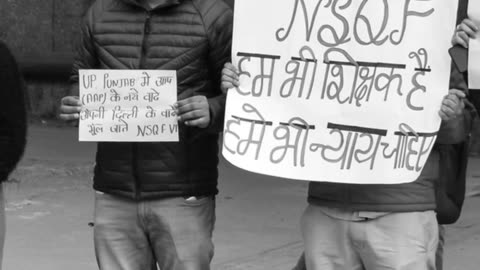 UP PUNJAB में आप
(AAP) के नये वादे
अपनी दिल्ली के वादे
भूल जाते NSQF VT
NSQF
हम भी शिक्षक है
हमे भी न्याय चाहिए